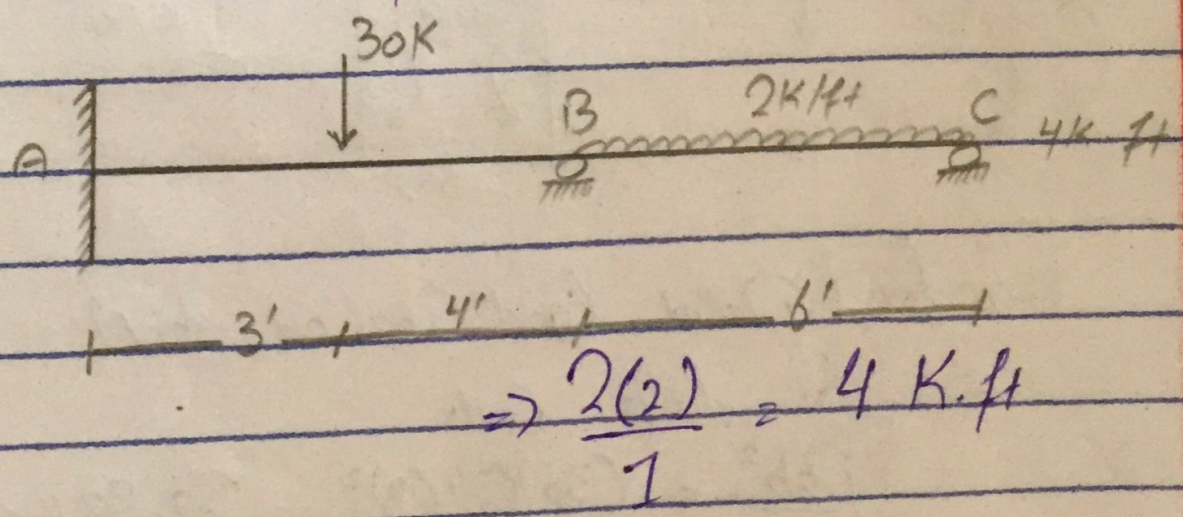 30K
A B 2K/ft C 4K ft
3' 4' 6'
=> 2(2)/1 = 4 K.ft